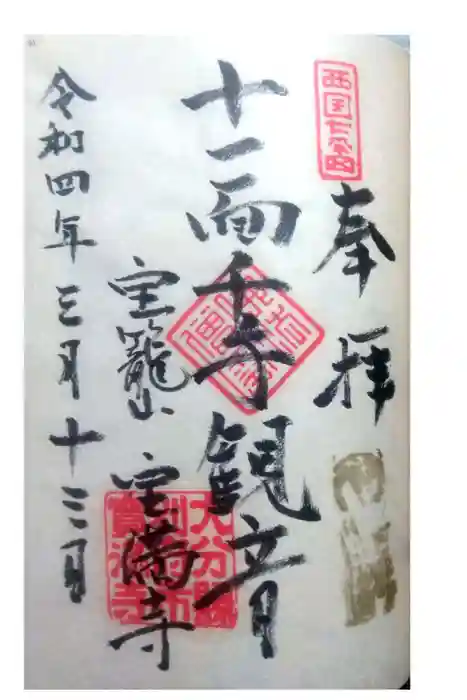 西国七番
奉拝
十一面千手観音
宝籠山 宝満寺
大分縣
別府市
寶満寺
令和四年三月十三日